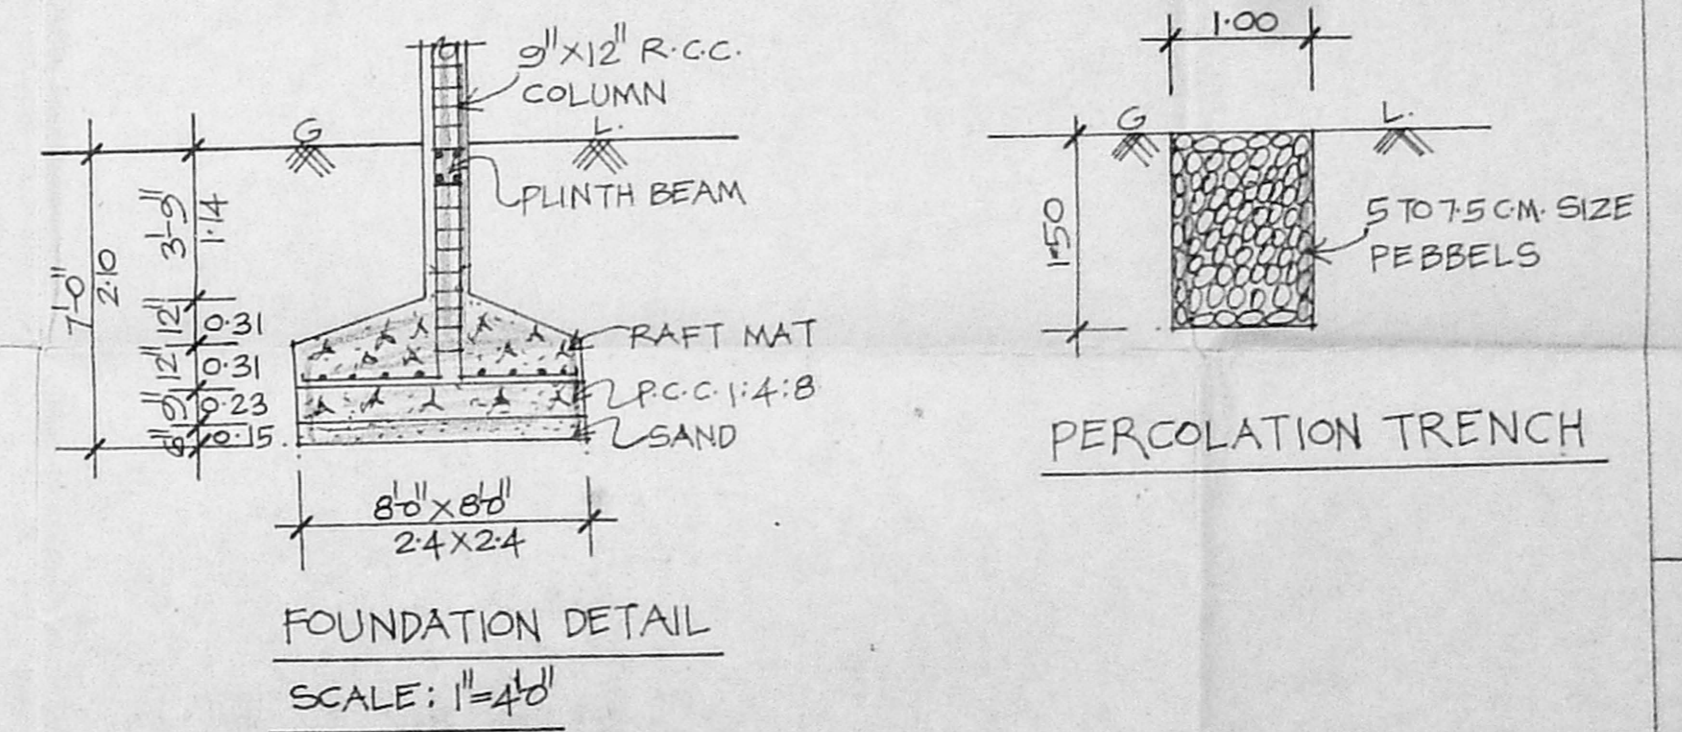 9"X12" R.C.C.
COLUMN
G
L.
PLINTH BEAM
7'-0"
2.10
3'-9"
1.14
12"
0.31
12"
0.31
9"
0.23
6"
0.15
RAFT MAT
P.C.C. 1:4:8
SAND
8'-0" X 8'-0"
2.4 X 2.4
FOUNDATION DETAIL
SCALE: 1"=4'-0"
1.00
G
L.
1.50
5 TO 7.5 C.M. SIZE
PEBBELS
PERCOLATION TRENCH